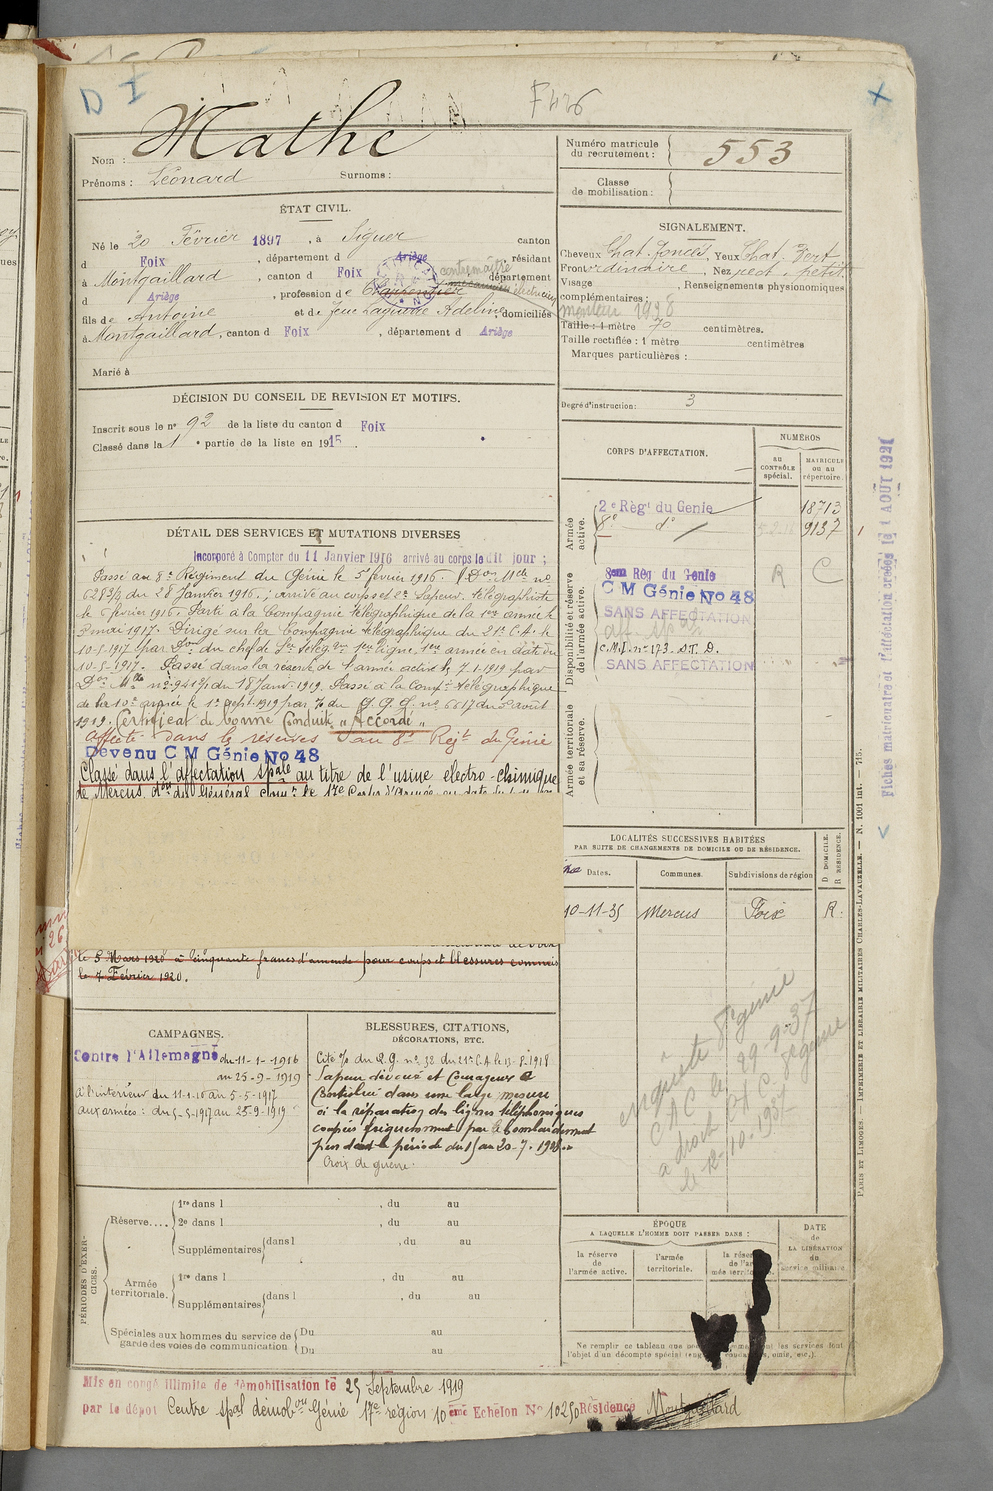 D I
F426
Mathe
Nom :
Prénoms : Léonard Surnoms :
Numéro matricule
du recrutement : 553
Classe
de mobilisation :
ÉTAT CIVIL.
Né le 20 Février 1897, à Siguer canton
d Foix, département d Ariège, résidant
à Montgaillard, canton d Foix département
d Ariège, profession de Charpentier
contremaître
mécanicien électricien
monteur 1928
fils de Antoine et de Jene Laguerre Adeline domiciliés
à Montgaillard, canton d Foix, département d Ariège
Marié à
SIGNALEMENT.
Cheveux Chat. foncés, Yeux Chat. Vert
Front ordinaire, Nez rect. petit
Visage , Renseignements physionomiques
complémentaires :
Taille : 1 mètre 70 centimètres.
Taille rectifiée : 1 mètre centimètres
Marques particulières :
Degré d'instruction : 3
DÉCISION DU CONSEIL DE REVISION ET MOTIFS.
Inscrit sous le n° 92 de la liste du canton d Foix
Classé dans la 1e partie de la liste en 1915.
CORPS D'AFFECTATION.
NUMÉROS
au
CONTRÔLE
spécial.
MATRICULE
ou au
répertoire.
Armée
active.
2e Règt du Genie 18713
8e do 9137
Disponibilité et réserve
de l'armée active.
8eme Rég du Genie R C
C M Génie No 48
SANS AFFECTATION
C.M.I. n° 173. S.T.D.
SANS AFFECTATION
Armée territoriale
et sa réserve.
DÉTAIL DES SERVICES ET MUTATIONS DIVERSES
Incorporé à Compter du 11 Janvier 1916 arrivé au corps le dit jour ;
Passé au 8e Régiment du Génie le 5 février 1916. (Don Mlle no
6283/9 du 28 Janvier 1916. ; arrivé au corps et 2e Sapeur. télégraphiste
le 5 février 1916. Parti à la Compagnie télégraphique de la 1ere armée le
3 mai 1917. Dirigé sur la Compagnie télégraphique du 21e C.A. le
10-5-1917 (par Don du chef de Sce télégque 1ere ligne, 1ere armée en date du
10-5-1917. Passé dans la réserve de l'armée active le, 7.1.1919 par
Don Mlle no 941 2/9 du 18 Janv. 1919. Passé à la Compie télégraphique
de la 10e armée le 1er Sept. 1919 par % du G.Q.G. no 6617 du 5 août
1919. Certificat de bonne Conduite "Accordé"
Affecté dans la réserves au 8e Régt du Génie
Devenu C M Génie No 48
Classé dans l'affectation spale au titre de l'usine électro-chimique
de Mercus, don du Général Commt le 17e Corps d'Armée en date du
le 5 Mars 1920 à cinquante francs d'amende pour coups et blessures commis
le 7 Février 1920.
LOCALITÉS SUCCESSIVES HABITÉES
PAR SUITE DE CHANGEMENTS DE DOMICILE OU DE RÉSIDENCE.
Dates. Communes. Subdivisions de région
D DOMICILE.
R RÉSIDENCE.
10-11-35 Mercus Foix R.
enquête 8e génie
CAC le 29-9-37
a droit CAC 8e génie
le 12-10-1937
CAMPAGNES.
Contre l'Allemagne du 11-1-1916
au 25-9-1919
à l'intérieur du 11-1-16 au 5-5-1917
aux armées : du 5-5-1917 au 25-9-1919
BLESSURES, CITATIONS,
DÉCORATIONS, ETC.
Cité % du Q.G. no 38 du 21e C.A le 13-8-1918
Sapeur dévoué et Courageux a
Contribué dans une large mesure
à la réparation des lignes téléphoniques
coupées fréquemment par le bombardement
pendant la période du 15 au 20-7-1918.
Croix de guerre.
PÉRIODES D'EXERCICES.
Réserve....
1re dans l , du au
2e dans l , du au
Supplémentaires dans l , du au
Armée
territoriale.
1re dans l , du au
Supplémentaires dans l , du au
Spéciales aux hommes du service de
garde des voies de communication
Du au
Du au
ÉPOQUE
A LAQUELLE L'HOMME DOIT PASSER DANS :
la réserve
de l'armée active.
l'armée
territoriale.
la réserve
de l'armée territoriale
DATE
de
LA LIBÉRATION
du
service militaire
Ne remplir ce tableau que
l'objet d'un décompte spécial
Mis en congé illimité de démobilisation le 25 Septembre 1919
par le dépôt Centre spal démobon Génie 17e région 10 eme Echelon No 10250 Résidence Montgaillard
Fiches matriculaire et d'affectation créées le 1 AOUT 1921
PARIS ET LIMOGES. — IMPRIMERIE ET LIBRAIRIE MILITAIRES CHARLES-LAVAUZELLE. — N. 1001 int. — 715.